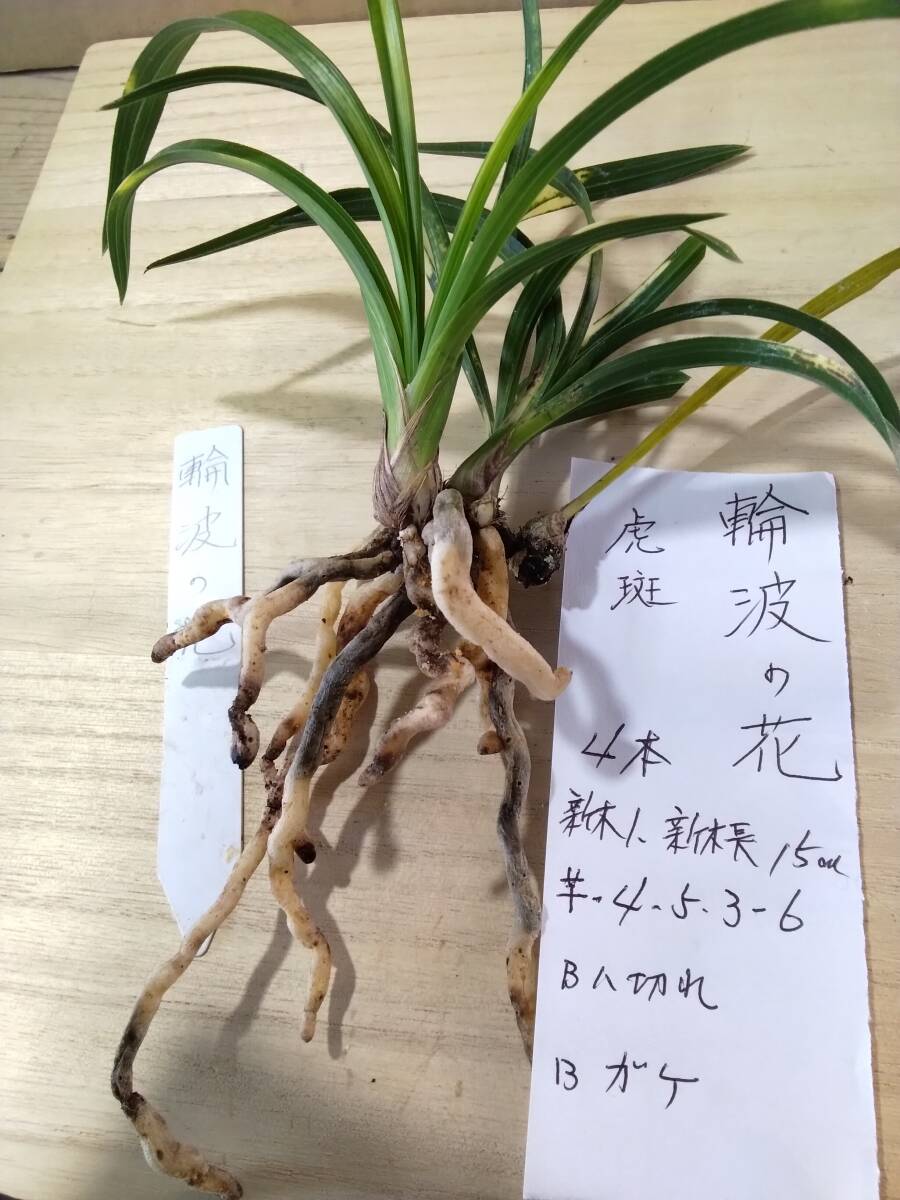 輪波の花
輪波の花
虎斑
4本
新木1、新木長15cm
葉-4-5-3-6
B1切れ
Bガケ